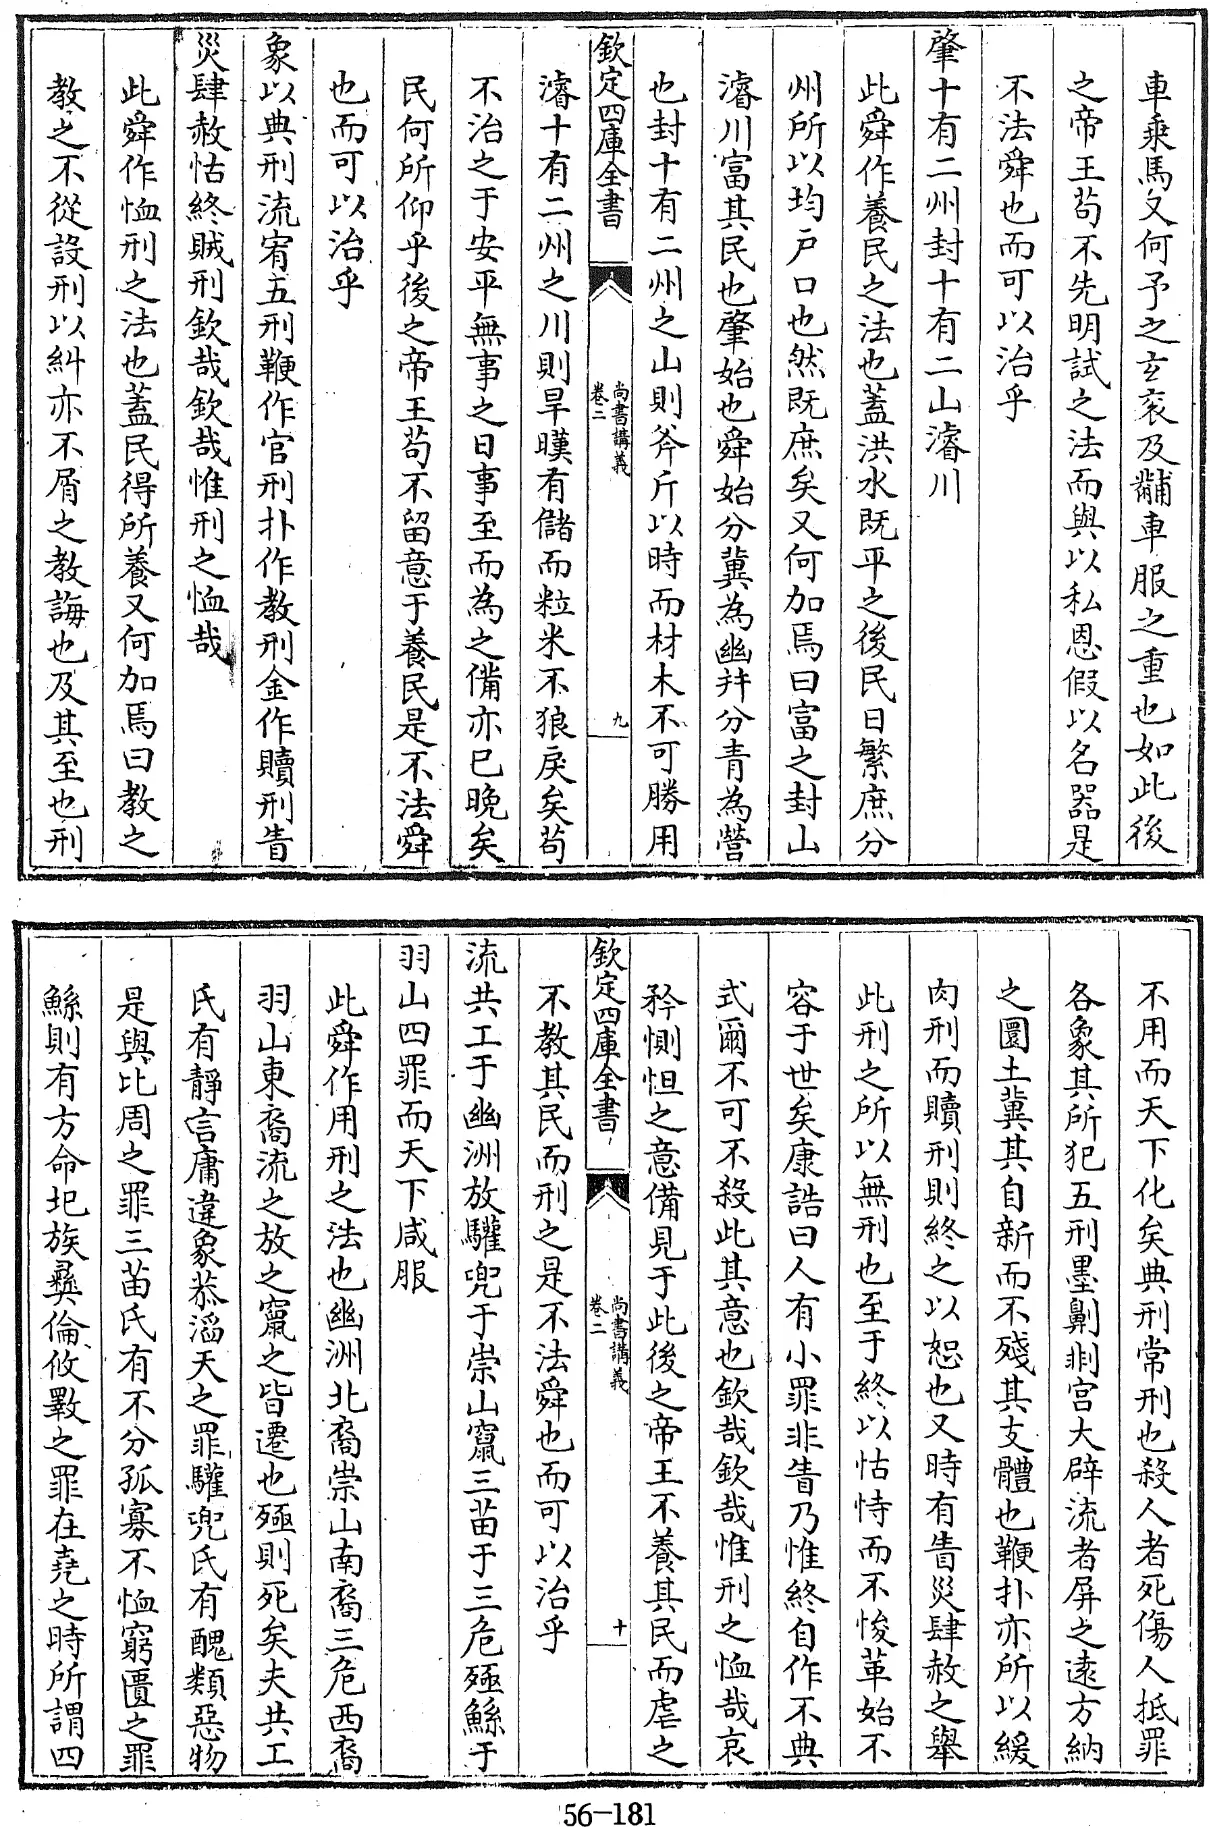 車乘馬又何予之玄衮及黼車服之重也如此後
之帝王苟不先明試之法而與以私恩假以名器是
不法舜也而可以治乎
肇十有二州封十有二山濬川
此舜作養民之法也蓋洪水既平之後民日繁庶分
州所以均戸口也然既庶矣又何加焉曰富之封山
濬川富其民也肇始也舜始分冀為幽并分青為營
也封十有二州之山則斧斤以時而材木不可勝用
欽定四庫全書
尚書講義
卷二
九
濬十有二州之川則旱暵有儲而粒米不狼戾矣苟
不治之于安平無事之日事至而為之備亦已晚矣
民何所仰乎後之帝王苟不留意于養民是不法舜
也而可以治乎
象以典刑流宥五刑鞭作官刑扑作教刑金作贖刑眚
災肆赦怙終賊刑欽哉欽哉惟刑之恤哉
此舜作恤刑之法也蓋民得所養又何加焉曰教之
教之不從設刑以糾亦不屑之教誨也及其至也刑
不用而天下化矣典刑常刑也殺人者死傷人抵罪
各象其所犯五刑墨劓剕宮大辟流者屏之遠方納
之圜土冀其自新而不殘其支體也鞭扑亦所以緩
肉刑而贖刑則終之以恕也又時有眚災肆赦之舉
此刑之所以無刑也至于終以怙恃而不悛革始不
容于世矣康誥曰人有小罪非眚乃惟終自作不典
式爾不可不殺此其意也欽哉欽哉惟刑之恤哉哀
矜惻怛之意備見于此後之帝王不養其民而虐之
欽定四庫全書
尚書講義
卷二
十
不教其民而刑之是不法舜也而可以治乎
流共工于幽洲放驩兜于崇山竄三苗于三危殛鯀于
羽山四罪而天下咸服
此舜作用刑之法也幽洲北裔崇山南裔三危西裔
羽山東裔流之放之竄之皆遷也殛則死矣夫共工
氏有靜言庸違象恭滔天之罪驩兜氏有醜類惡物
是與比周之罪三苗氏有不分孤寡不恤窮匱之罪
鯀則有方命圮族彝倫攸斁之罪在堯之時所謂四
56-181